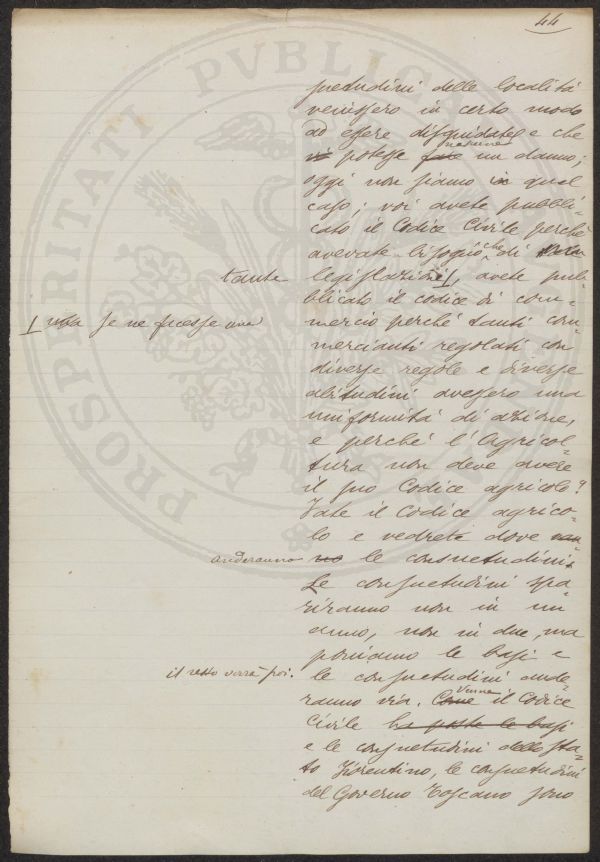 44
suetudini delle località
venissero in certo modo
ad essere disguidate e che
vi potesse nascerne fare un danno;
oggi non siamo in quel
caso; voi avete pubbli-
cato il Codice Civile perchè
avevate bisogno che di
tante legislazioni, avete pub-
se ne facesse una
blicato il codice di com-
mercio perchè tanti com-
mercianti regolati con
diverse regole e diverse
abitudini avessero una
uniformità di azione,
e perchè l'Agricol-
tura non deve avere
il suo Codice agricolo?
Fate il Codice agrico-
lo e vedrete dove van-
anderanno no le consuetudini.
Le consuetudini spa-
riranno non in un
anno, non in due, ma
poniamo le basi e
il resto verrà poi. le consuetudini ande-
ranno via. Come Venne il Codice
Civile ha poste le basi
e le consuetudini dello Sta-
to Fiorentino, le consuetudini
del Governo Toscano sono
PROSPERITATI PVBLICAE